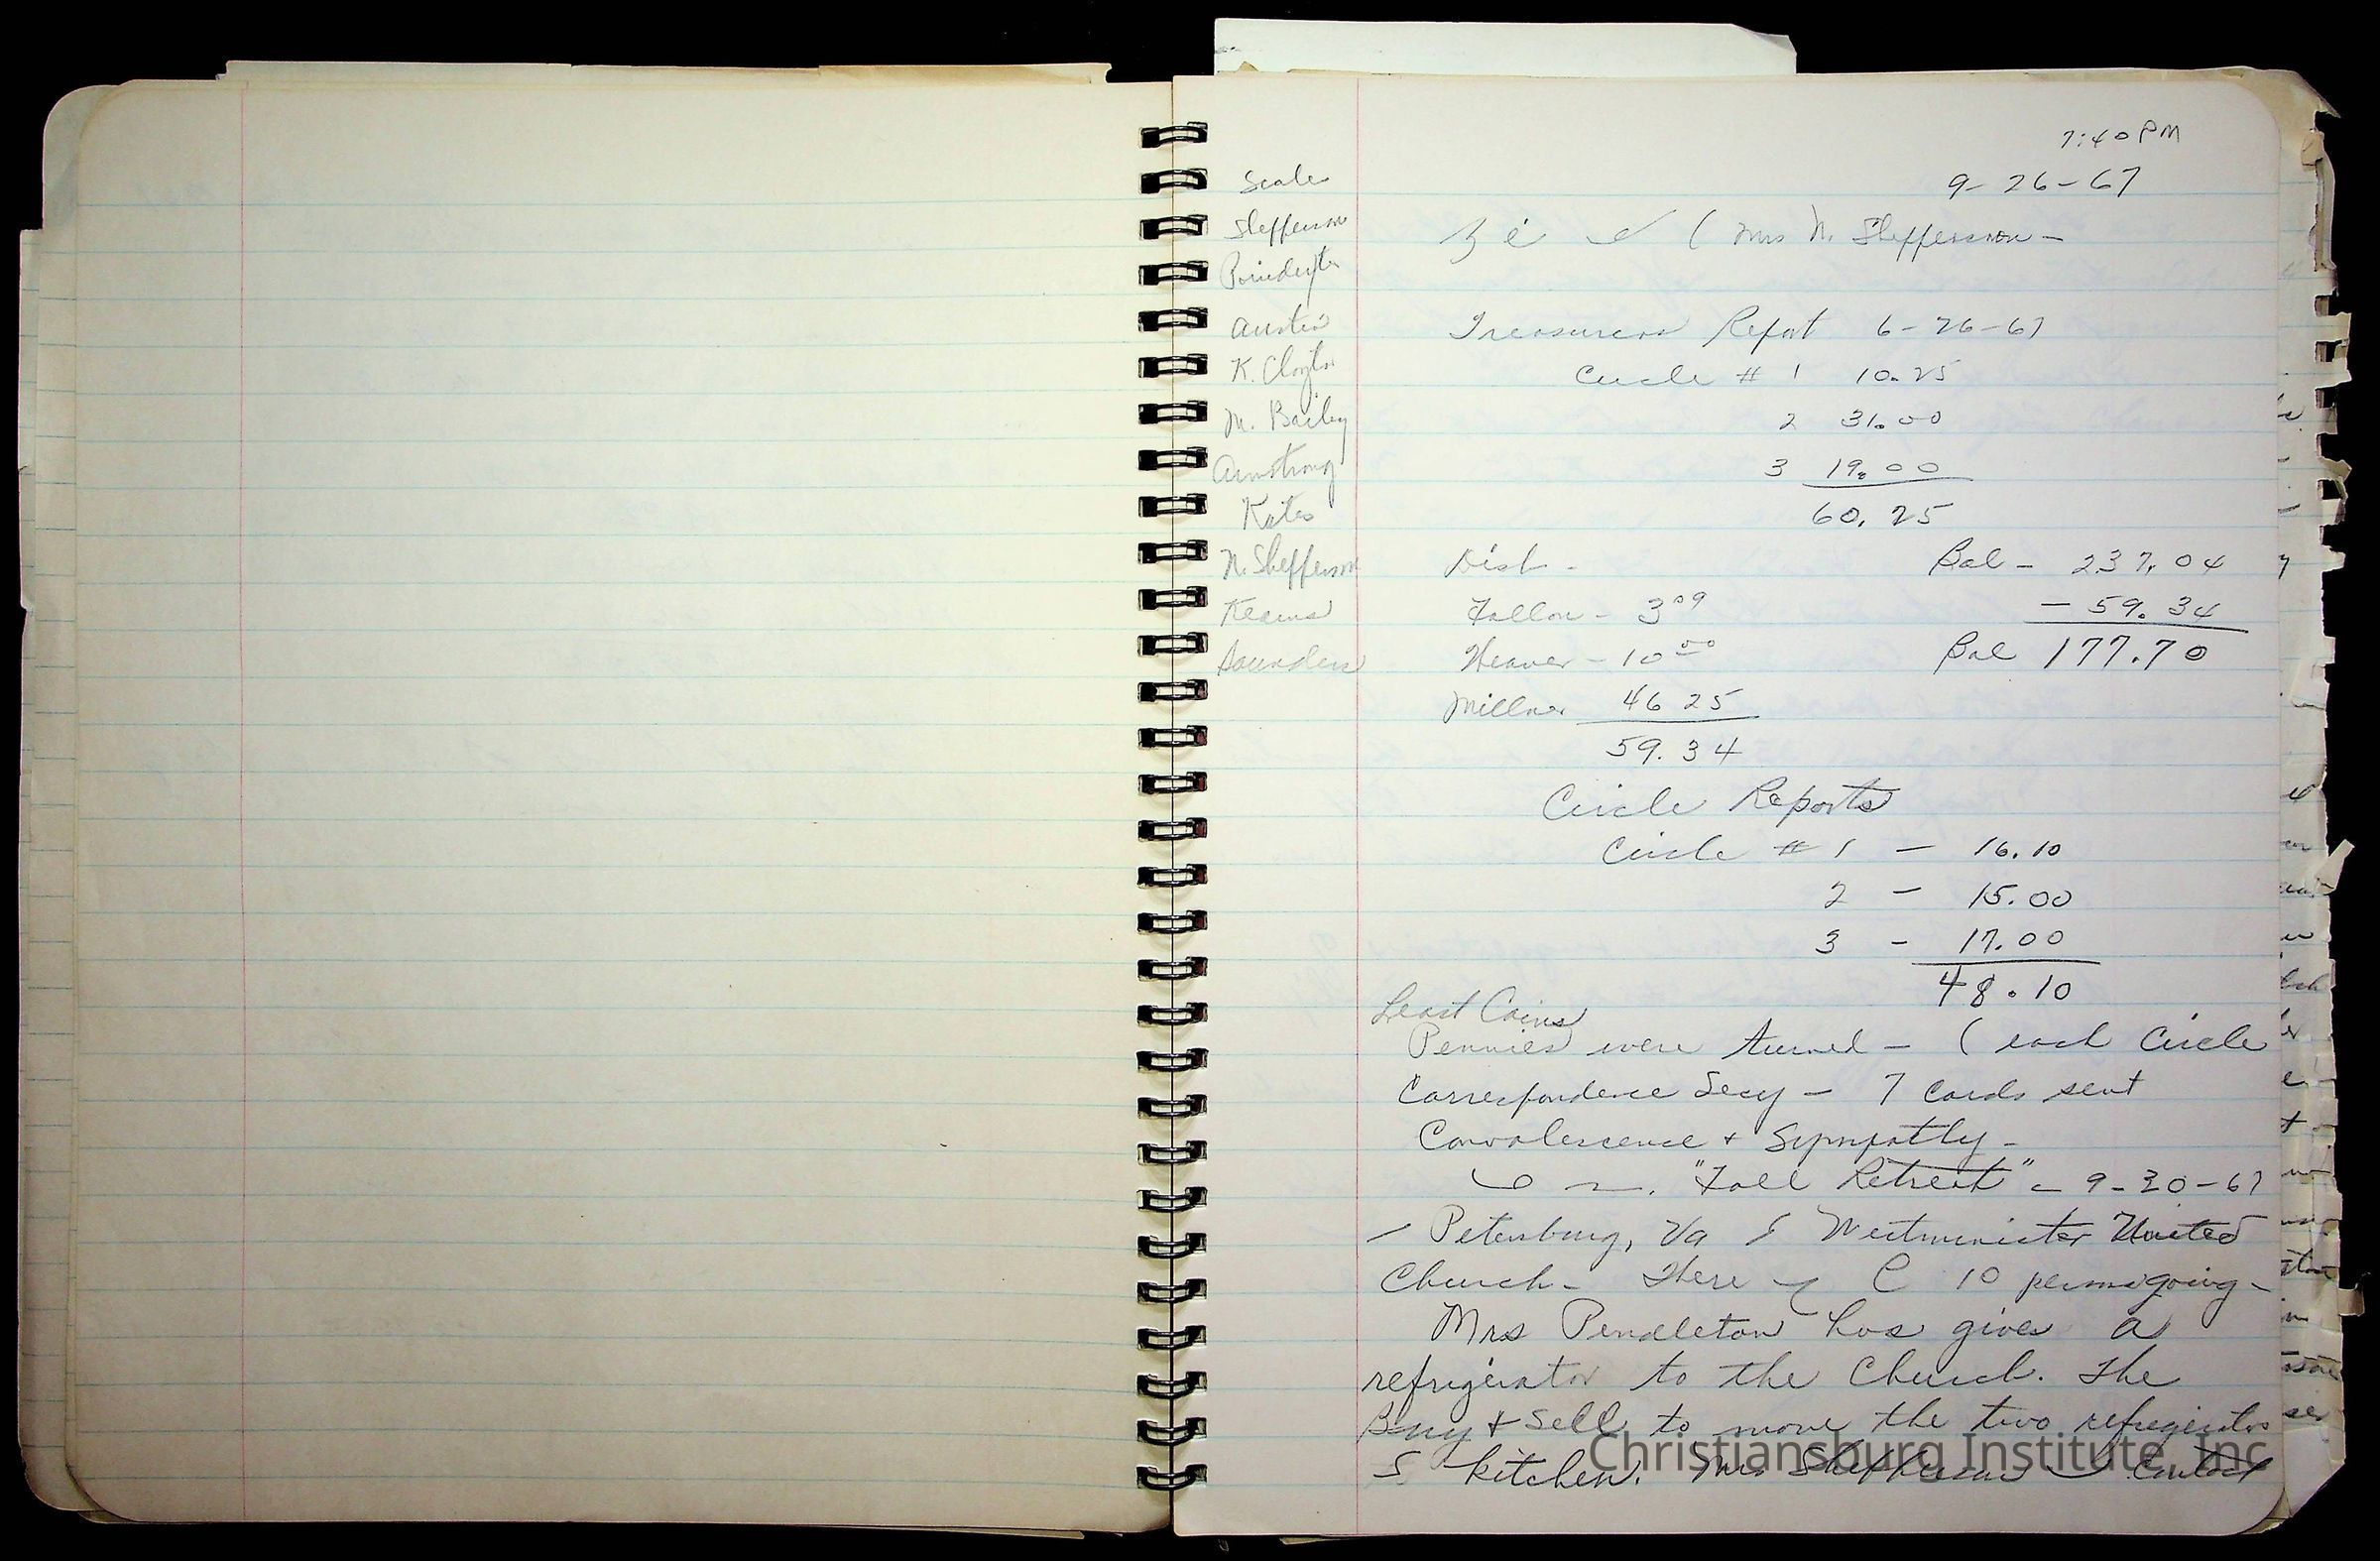 7:40 PM
9-26-67
Scales
Shefferson
Poindexter
Austin
K. Clayton
M. Bailey
Armstrong
Kates
N. Shefferson
Kearns
Saunders
(Mrs N. Shefferson -
Treasurers Report 6-26-67
Circle # 1 10.25
2 31.00
3 19.00
60.25
Dist - Bal - 237.04
Fallon - 3.09 - 59.34
Weaver - 10.00 Bal 177.70
Millner 46 25
59.34
Circle Reports
Circle # 1 - 16.10
2 - 15.00
3 - 17.00
48.10
Least Coins
Pennies were turned - ( each Circle
Correspondence Secy - 7 Cards sent
Convalescence + Sympathy -
"Fall Retreat" - 9-30-67
- Petersburg, Va Westminister United
Church - There 10 persons going -
Mrs Pendleton has given a
refrigerator to the Church. The
Buy + Sell to move the two refrigerators
kitchen. Mrs Shefferson Contact
Christiansburg Institute, Inc